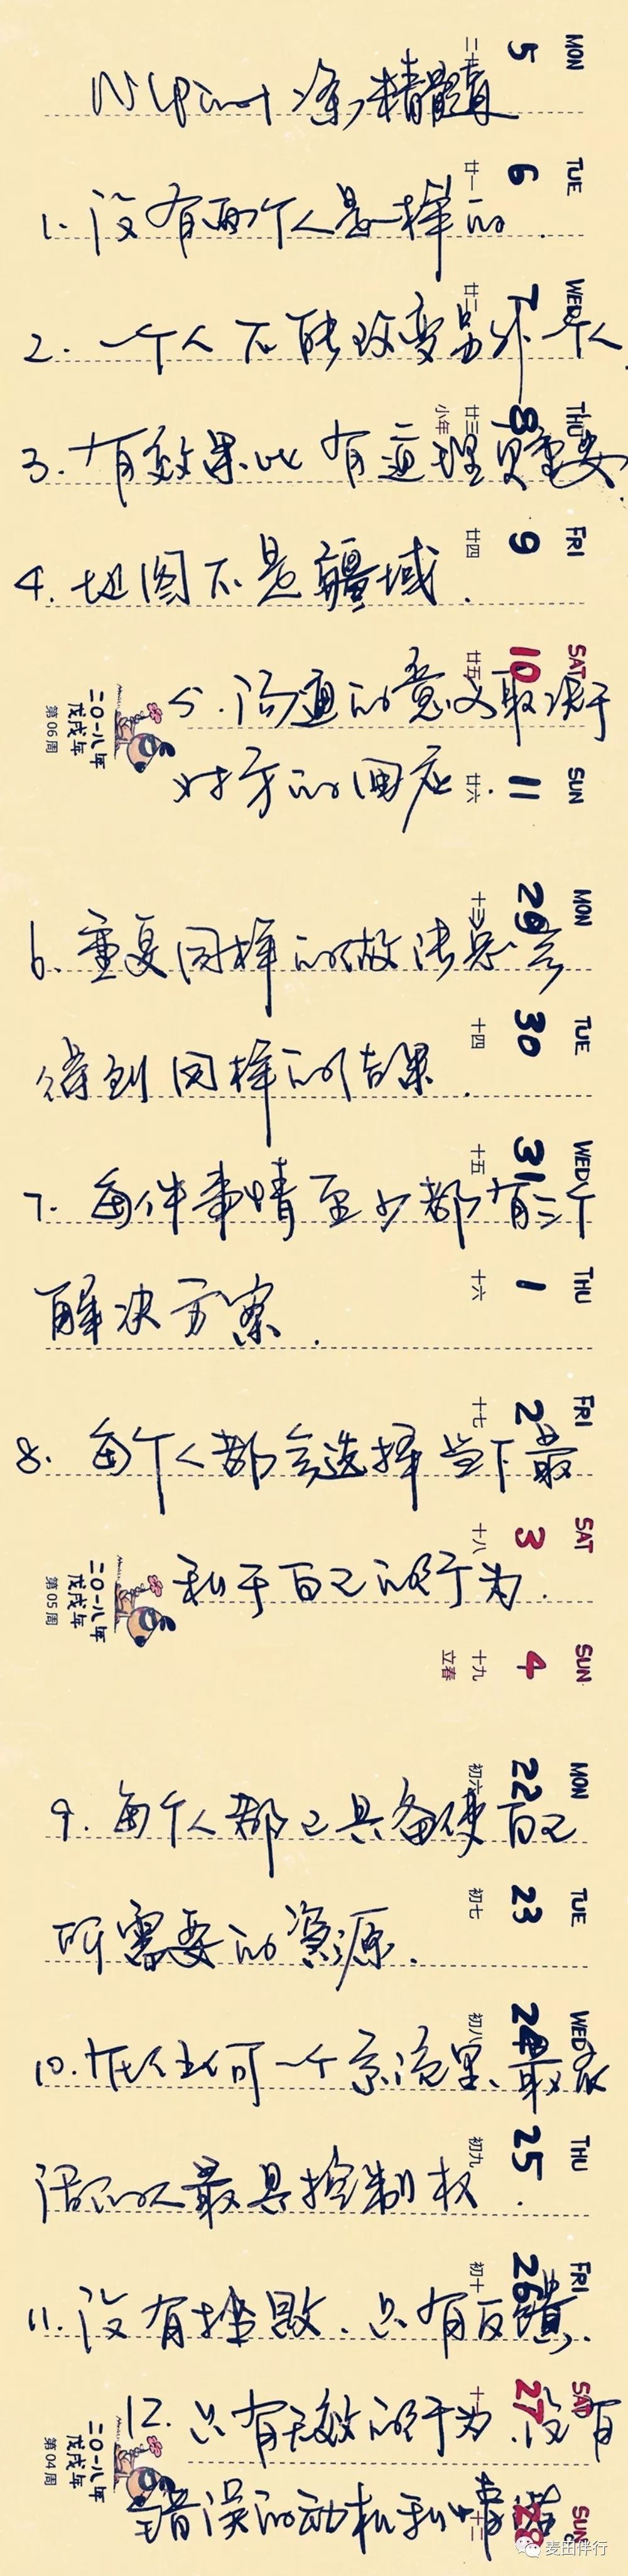 MON 5 二十
NLP 条精髓
TUE 6 廿一
1. 没有两个人是一样的.
WED 7 廿二
2. 一个人不能改变另外一个人.
THU 8 廿三 小年
3. 有效果比有道理更重要.
FRI 9 廿四
4. 地图不是疆域.
SAT 10 廿五
5. 沟通的意义取决于
SUN 11 廿六
对方的回应.
二〇一八年 戊戌年 第06周
MON 29 十三
6. 重复同样的做法总会
TUE 30 十四
得到同样的结果.
WED 31 十五
7. 每件事情至少都有三个
THU 1 十六
解决方案.
FRI 2 十七
8. 每个人都会选择当下最
SAT 3 十八
利于自己的行为.
SUN 4 十九 立春
二〇一八年 戊戌年 第05周
MON 22 初六
9. 每个人都已具备使自己
TUE 23 初七
所需要的资源.
WED 24 初八
10. 在任何一个系统里、最灵
THU 25 初九
活的人最具控制权.
FRI 26 初十
11. 没有挫败、只有反馈.
SAT 27 十一
12. 只有无效的行为.没有
SUN 28 十二
错误的动机和情绪
二〇一八年 戊戌年 第04周
麦田伴行